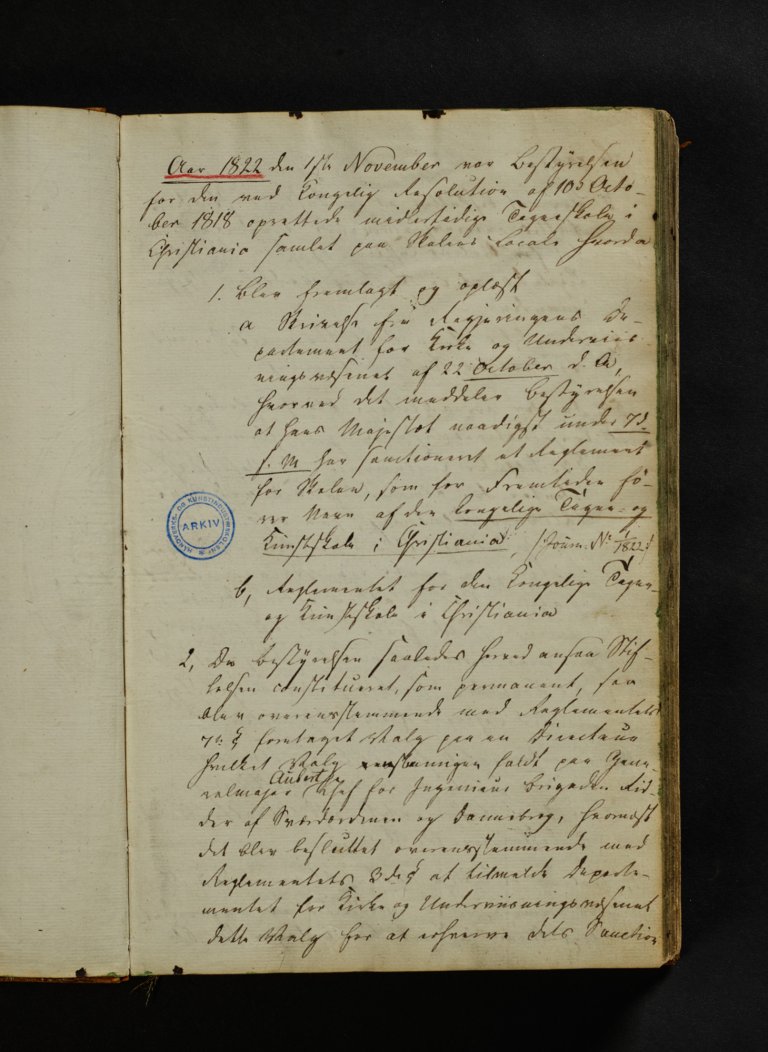 Aar 1822 den 1ste November var Bestyrelsen
for den ved Kongelig Resolution af 10de Octo-
ber 1818 oprettede midlertidige Tegneskole i
Christiania samlet paa Skolens Locale hvorda
1. Blev fremlagt og oplæst
a Skrivelse fra Regjeringens De-
partement for Kirke og Underviis-
ningsvæsenet af 22 October d. A,
hvorved det meddeler Bestyrelsen
at Hans Majestæt naadigst under 7d.
s. M har sanctioneret et Reglement
for Skolen, som for Fremtiden fö-
rer Navn af den kongelige Tegne- og
Kunstskole i Christiania, (Journ. No 1/1822)
b, Reglementet for den Kongelige Tegne-
og Kunstskole i Christiania
2, Da Bestyrelsen saaledes herved ansaa Stif-
telsen constitueret, som permanent, saa
blev overensstemmende med Reglementets
7de § foretaget Valg paa en Directeur
hvilket Valg eenstemmigen faldt paa Gene-
ralmajor Aubert Chef for Ingenieur Brigaden Rid-
der af Sværdordenen og Dannebrog, hvornæst
det blev besluttet overensstemmende med
Reglementets 3die § at tilmelde Departe-
mentet for Kirke og Underviisningsvæsenet
dette Valg for at erhverve dets Sanction
HÅNDVERKS- OG KUNSTINDUSTRISKOLEN
ARKIV